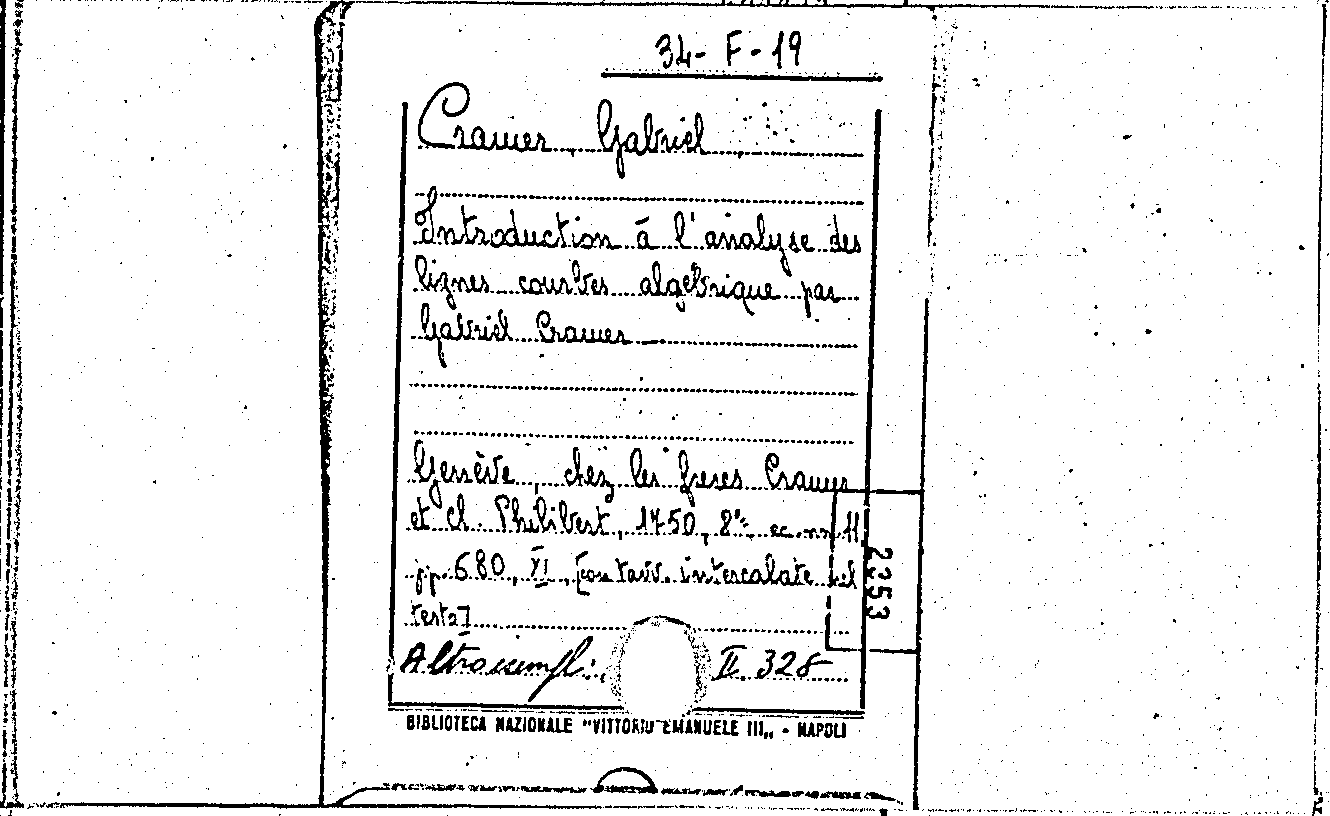 34- F-19
Cramer, Gabriel
Introduction à l'analyse des
lignes courbes algébrique par
Gabriel Cramer
Genève, chez les freres Cramer
et Cl. Philibert, 1750, 8°, cc.nn 11,
pp. 680, XI, [con tavv. intercalate nel
testo]
Altro esempl:. II. 328
2353
BIBLIOTECA NAZIONALE "VITTORIO EMANUELE III„ - NAPOLI